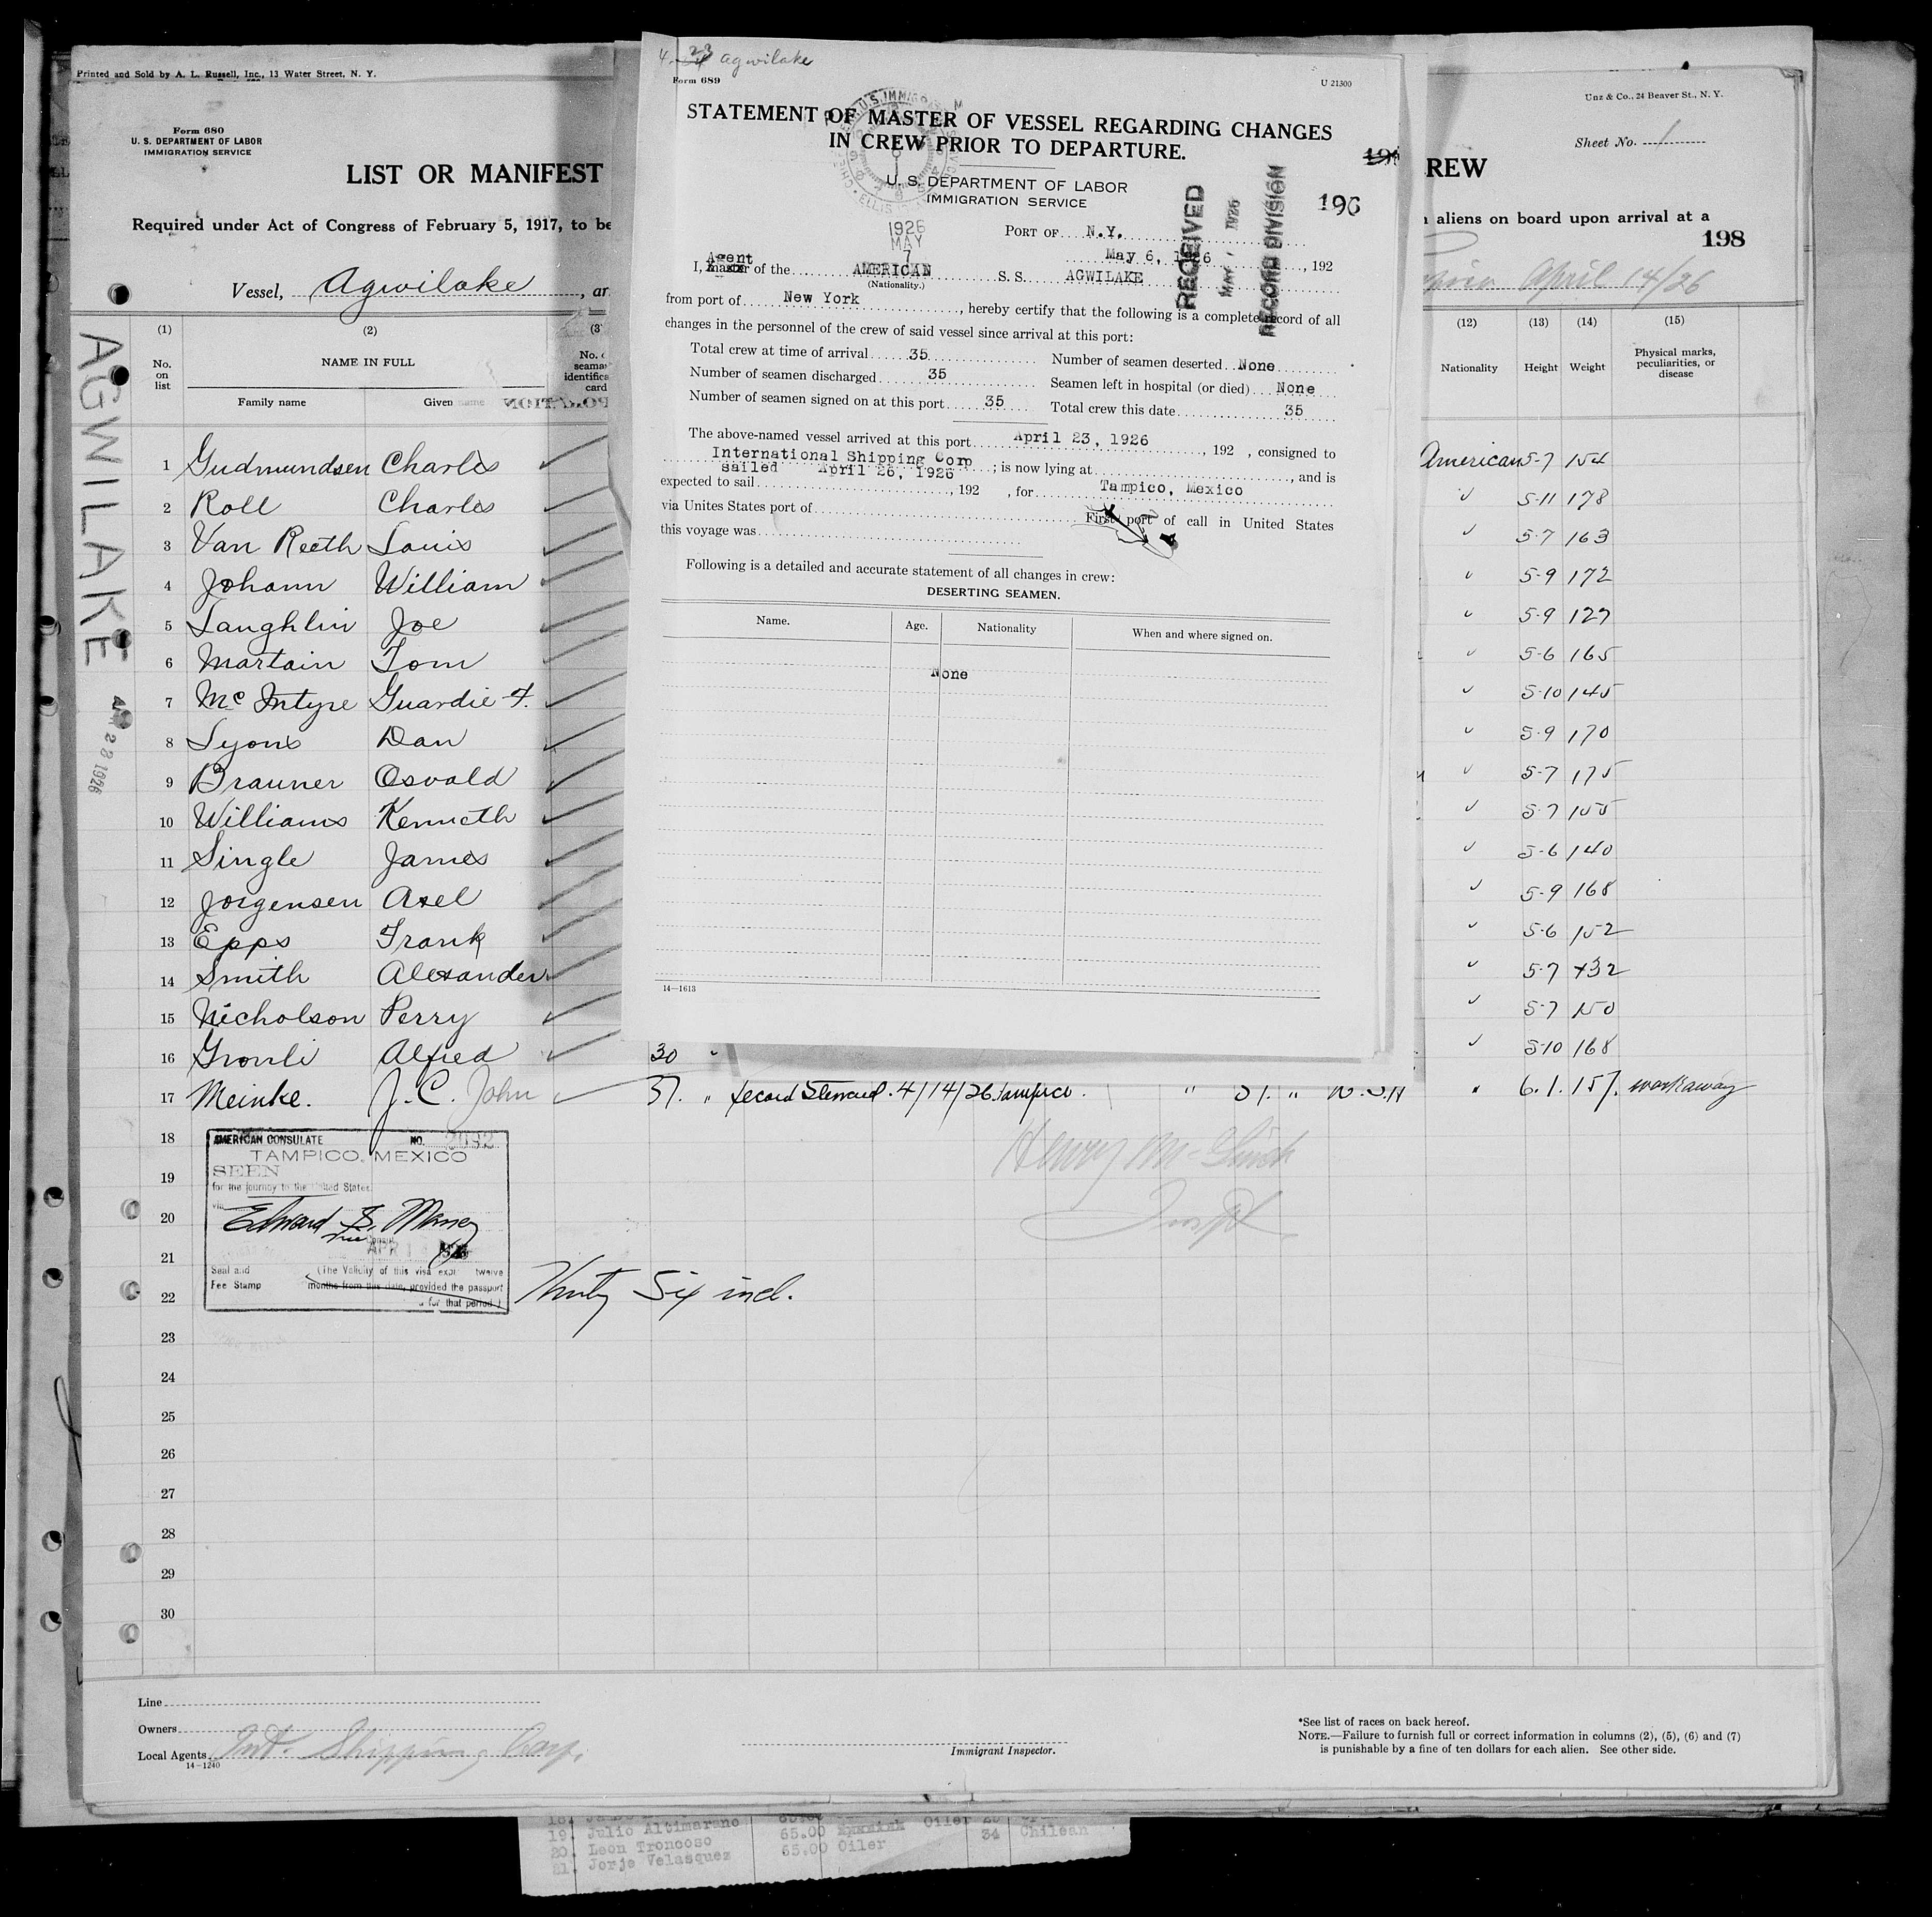 Printed and Sold by A. L. Russell, Inc., 13 Water Street, N. Y.
Form 680
U. S. DEPARTMENT OF LABOR
IMMIGRATION SERVICE
LIST OR MANIFEST
Required under Act of Congress of February 5, 1917, to be
Vessel, Agwilake, ar
AGWILAKE
23 1926
(1) (2) (3)
No. on list
NAME IN FULL
Family name Given name
1 Gudmundsen Charles
2 Roll Charles
3 Van Reeth Louis
4 Johann William
5 Laughlin Joe
6 Martain Tom
7 McIntyre Guardie F.
8 Lyons Dan
9 Brauner Osvald
10 Williams Kenneth
11 Single James
12 Jorgensen Axel
13 Epps Frank
14 Smith Alexander
15 Nicholson Perry
16 Gronli Alfred 30 "
17 Meinke. J. C. John 31. " second Steward. 4/14/26 Tampico. " 31. " " 6.1. 157. workaway
18
19
20
21
22
23
24
25
26
27
28
29
30
AMERICAN CONSULATE NO. 2092
TAMPICO, MEXICO
SEEN
for the journey to the United States
via
Edward S. Maney
Vice Consul
APR 14 1926
Seal and (The Validity of this visa expires twelve
Fee Stamp months from this date, provided the passport
for that period.)
Thirty Six incl.
Line
Owners
Local Agents Int. Shipping Corp.
14-1240
Immigrant Inspector.
*See list of races on back hereof.
NOTE.—Failure to furnish full or correct information in columns (2), (5), (6) and (7)
is punishable by a fine of ten dollars for each alien. See other side.
4-23 Agwilake
Form 689
U 21300
STATEMENT OF MASTER OF VESSEL REGARDING CHANGES
IN CREW PRIOR TO DEPARTURE.
U. S. DEPARTMENT OF LABOR
IMMIGRATION SERVICE
196
1926
MAY
7
RECEIVED
RECORD DIVISION
PORT OF N.Y.
May 6, 1926, 192
I, Agent of the AMERICAN S. S. AGWILAKE
(Nationality.)
from port of New York, hereby certify that the following is a complete record of all
changes in the personnel of the crew of said vessel since arrival at this port:
Total crew at time of arrival 35 Number of seamen deserted None
Number of seamen discharged 35 Seamen left in hospital (or died) None
Number of seamen signed on at this port 35 Total crew this date 35
The above-named vessel arrived at this port April 23, 1926, 192 , consigned to
International Shipping Corp; is now lying at, and is
sailed April 26, 1926
expected to sail, 192 , for Tampico, Mexico
via Unites States port of First port of call in United States
this voyage was
Following is a detailed and accurate statement of all changes in crew:
DESERTING SEAMEN.
Name. Age. Nationality When and where signed on.
None
14—1613
Unz & Co., 24 Beaver St., N. Y.
Sheet No. 1
REW
aliens on board upon arrival at a
198
April 14/26
(12) (13) (14) (15)
Nationality Height Weight Physical marks, peculiarities, or disease
American 5-7 154
5-11 178
5-7 163
5-9 172
5-9 127
5-6 165
5-10 145
5-9 170
5-7 175
5-7 155
5-6 140
5-9 168
5-6 152
5-7 132
5-7 150
5-10 168
19. Julio Altimarano 65.00 Oiler
20. Leon Troncoso 65.00 Oiler 34 Chilean
21. Jorje Velasquez